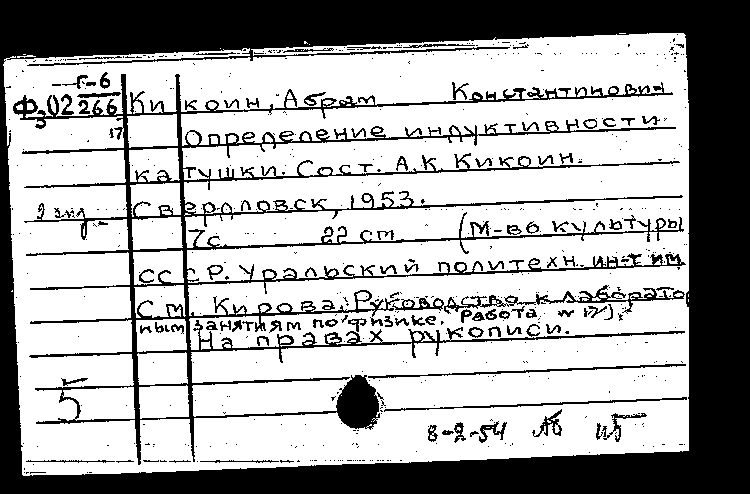 Г-6
Ф302 266 Кикоин, Абрам Константинович
17
Определение индуктивности
катушки. Сост. А.К. Кикоин.
Свердловск, 1953.
7с. 22 cm (М-во культуры
СССР. Уральский политехн. ин-т им.
С.М. Кирова. Руководство к лаборатор
ным занятиям по физике. Работа № 17).
На правах рукописи.
5
8-2-54